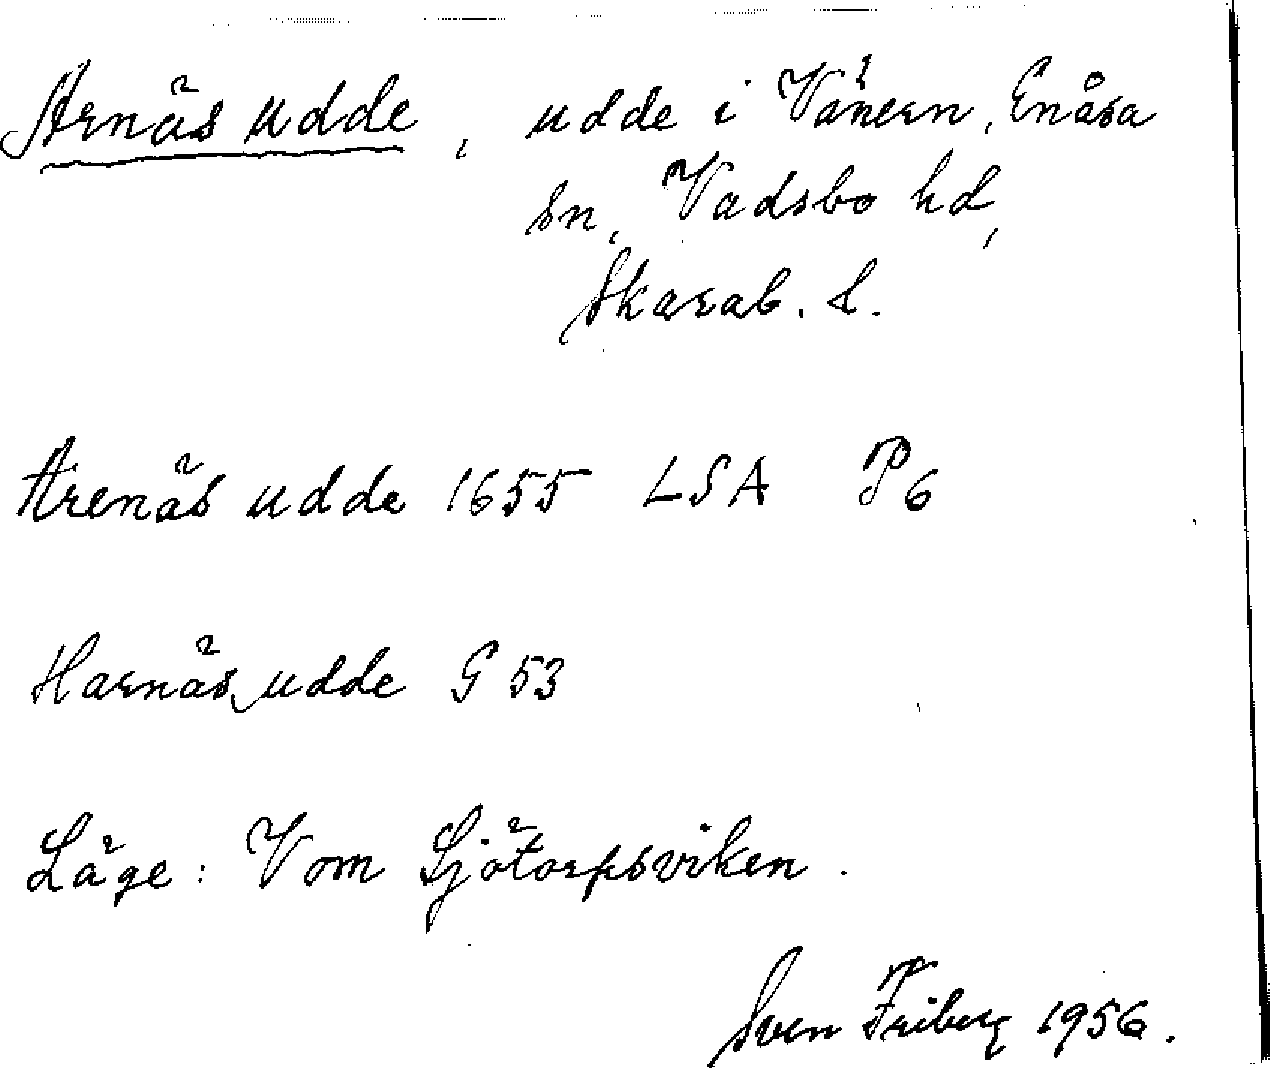 Arnäs udde, udde i Vänern, Enåsa
sn, Vadsbo hd,
Skarab. l.
Arenäs udde 1655 LSA P6
Harnäs udde G 53
Läge: V om Sjötorpsviken.
Sven Friberg 1956.